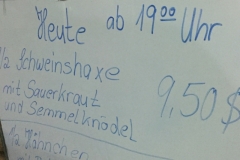 Heute ab 19ºº Uhr
1/2 Schweinshaxe
mit Sauerkraut
und Semmelknödel
9,50$
Hähnchen